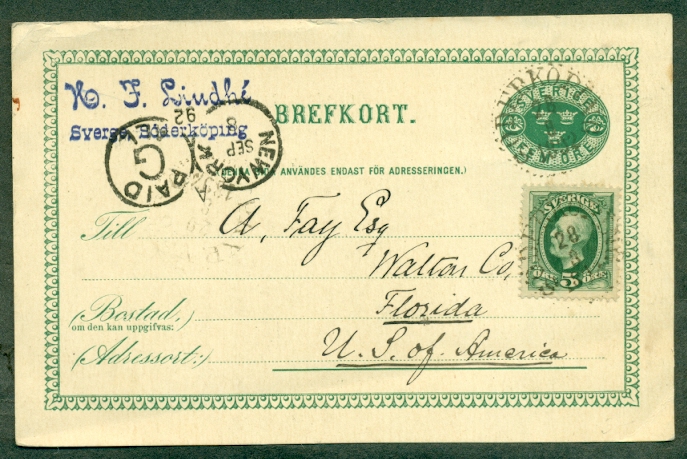 N. F. Lindhé
Sverge, Söderköping
BREFKORT.
SVERIGE
FEM ÖRE
NEW YORK
SEP
92
PAID
G
(DENNA SIDA ANVÄNDES ENDAST FÖR ADRESSERINGEN.)
SVERIGE
28
8
5 ÖRE
Till A, Fay Esq
Walton Co,
(Bostad,
om den kan uppgifvas:)
Florida
(Adressort:)
U. S. of America